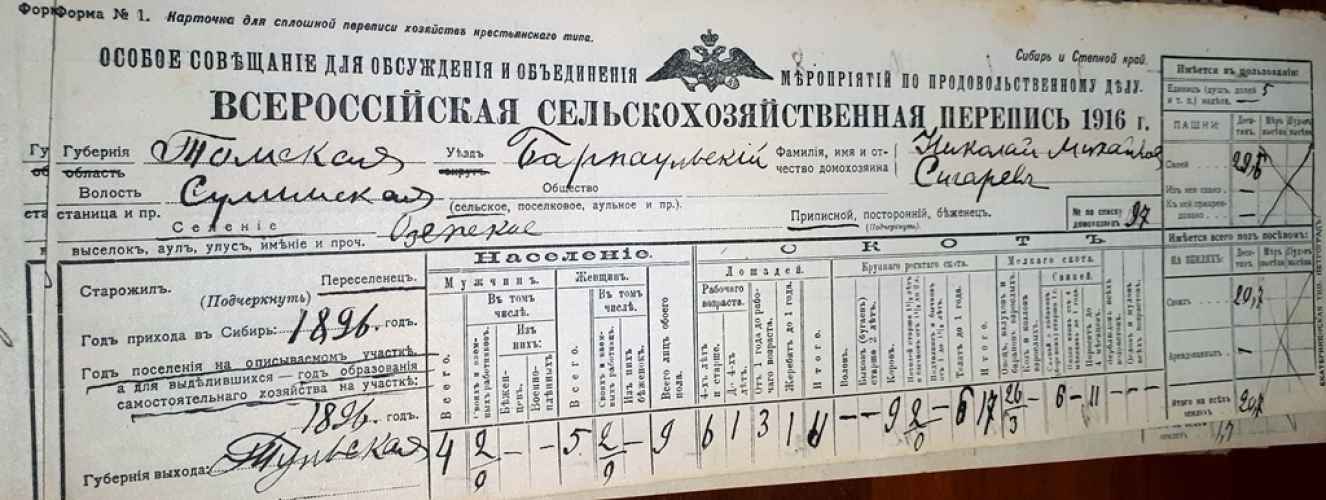 Форма № 1. Карточка для сплошной переписи хозяйствъ крестьянскаго типа.
Сибирь и Степной край.
ОСОБОЕ СОВѢЩАНІЕ ДЛЯ ОБСУЖДЕНІЯ И ОБЪЕДИНЕНІЯ МѢРОПРІЯТІЙ ПО ПРОДОВОЛЬСТВЕННОМУ ДѢЛУ.
ВСЕРОССІЙСКАЯ СЕЛЬСКОХОЗЯЙСТВЕННАЯ ПЕРЕПИСЬ 1916 г.
Губернія Томская Уѣздъ Барнаульскій Фамилія, имя и от- Николай Михайлов
область округъ чество домохозяина Сигаревъ
Волость Сулимская Общество
станица и пр. (сельское, поселковое, аульное и пр.). Приписной, посторонній, бѣженецъ.
(Подчеркнуть).
№ по списку домохозяевъ 97
Селеніе Озерское
выселокъ, аулъ, улусъ, имѣніе и проч.
Старожилъ. Переселенецъ.
(Подчеркнуть)
Годъ прихода въ Сибирь: 1896 годъ.
Годъ поселенія на описываемомъ участкѣ,
а для выдѣлившихся — годъ образованія
самостоятельнаго хозяйства на участкѣ:
1896 годъ.
Губернія выхода: Тульская
Населеніе.
Мужчинъ. Женщинъ.
Всего. Въ томъ числѣ. Изъ нихъ: Бѣжен- цевъ. Военно- плѣнныхъ
Всего. Въ томъ числѣ. Изъ нихъ бѣженокъ.
Всего лицъ обоего пола.
4 2/0 - - 5 2/0 - 9
СКОТЪ
Лошадей. Крупнаго рогатаго скота. Мелкаго скота.
Рабочаго возраста. Свиней.
4-хъ лѣтъ и старше. До 4-хъ лѣтъ. Отъ 1 года до рабо- чаго возраста. Жеребятъ до 1 года. Итого.
Воловъ. Быковъ (бугаевъ) старше 2 лѣтъ. Коровъ. Телятъ до 1 года. Итого.
6 1 3 1 11 - - 9 2/0 - 6 17 26/3 - 6 - 11 - - -
Имѣется въ пользованіи:
Единицъ (душ. долей и т. п.) надѣла. 5
ПАШНИ: Деся- тинъ.
Своей
Изъ нея сдано —
Имѣется всего подъ посѣвомъ:
Своихъ 20,7
Арендованныхъ —
Итого на всѣхъ земляхъ 20,7